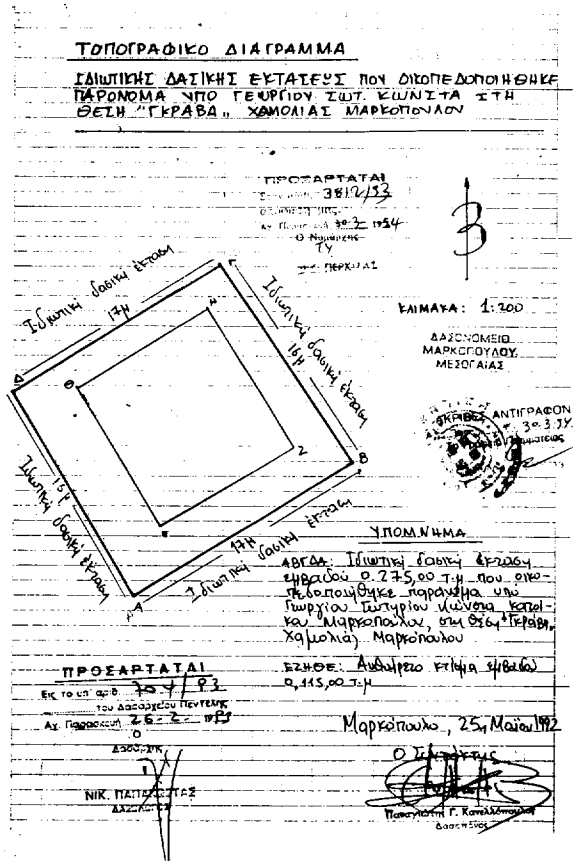 ΤΟΠΟΓΡΑΦΙΚΟ ΔΙΑΓΡΑΜΜΑ
ΙΔΙΩΤΙΚΗΣ ΔΑΣΙΚΗΣ ΕΚΤΑΣΕΩΣ ΠΟΥ ΟΙΚΟΠΕΔΟΠΟΙΗΘΗΚΕ
ΠΑΡΟΝΟΜΑ ΥΠΟ ΓΕΩΡΓΙΟΥ ΣΩΤ. ΚΩΝΣΤΑ ΣΤΗ
ΘΕΣΗ "ΓΚΡΑΒΑ" ΧΑΜΟΛΙΑΣ ΜΑΡΚΟΠΟΥΛΟΥ
ΠΡΟΣΑΡΤΑΤΑΙ
3812/93
Αγ. Παρασκευή 30-3-1994
Ο Νομάρχης
ΠΕΡΚΙΖΑΣ
3
ΚΛΙΜΑΚΑ: 1:200
ΔΑΣΟΝΟΜΕΙΟ
ΜΑΡΚΟΠΟΥΛΟΥ
ΜΕΣΟΓΑΙΑΣ
ΑΚΡΙΒΕΣ ΑΝΤΙΓΡΑΦΟΝ
30.3.94
Γ
Ιδιωτική δασική έκταση
17μ
Η
Ιδιωτική δασική έκταση
16μ
Δ
Θ
Ζ
Β
Ιδιωτική δασική έκταση
16μ
Ε
17μ
Ιδιωτική δασική έκταση
Α
ΥΠΟΜΝΗΜΑ
ΑΒΓΔΑ: Ιδιωτική δασική έκταση
εμβαδού 0.275,00 τ.μ που οικο-
πεδοποιήθηκε παράνομα υπό
Γεωργίου Σωτηρίου Κώνστα κατοί-
κου Μαρκοπούλου, στη θέση "Γκράβα"
Χαμολιάς Μαρκοπούλου
ΕΖΗΘΕ: Αυθαίρετο κτίσμα εμβαδού
0,115,00 τ.μ
ΠΡΟΣΑΡΤΑΤΑΙ
Εις το υπ' αριθ. 704/93
του Δασαρχείου Πεντέλης
Αγ. Παρασκευή 26-2-1993
Ο
Δασάρχης
ΝΙΚ.
ΔΑΣΟΛΟΓΟΣ
Μαρκόπουλο, 25η Μαΐου 1992
Ο Συντάκτης
Παναγιώτης Γ. Κανελλόπουλος
Δασοπόνος